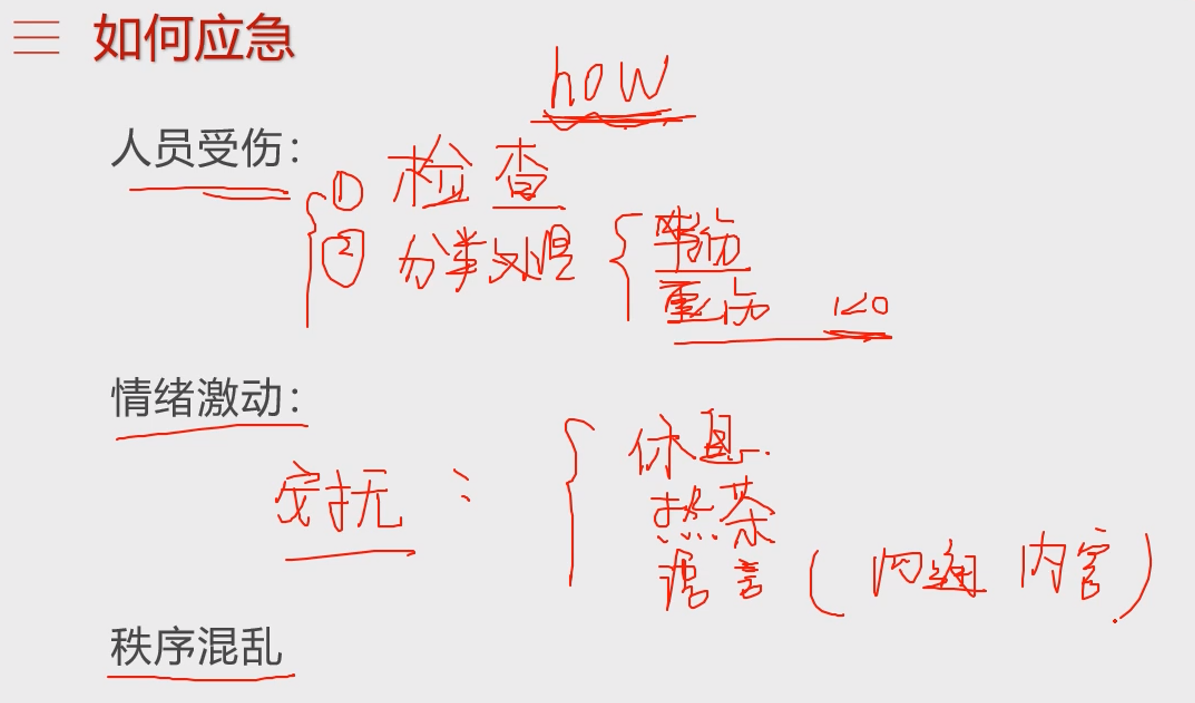 如何应急
how
人员受伤:
① 检查
② 分类处理
轻伤
重伤 120
情绪激动:
安抚:
休息
热茶
语言(沟通内容)
秩序混乱